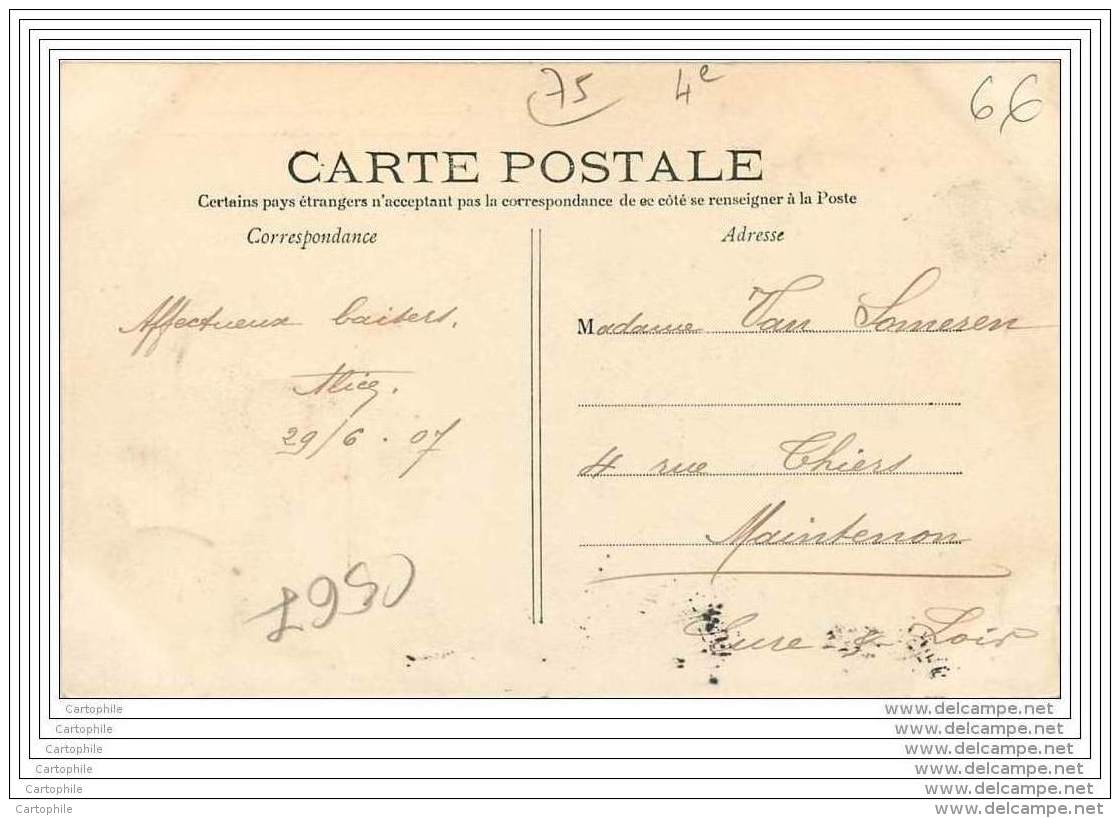 75 4e 66
CARTE POSTALE
Certains pays étrangers n'acceptant pas la correspondance de ce côté se renseigner à la Poste
Correspondance
Adresse
Affectueux baisers.
Alice.
29/6.07
Madame Van Someren
4 rue Thiers
Maintenon
Eure-&-Loir
Cartophile www.delcampe.net
Cartophile www.delcampe.net
Cartophile www.delcampe.net
Cartophile www.delcampe.net
Cartophile www.delcampe.net
Cartophile www.delcampe.net